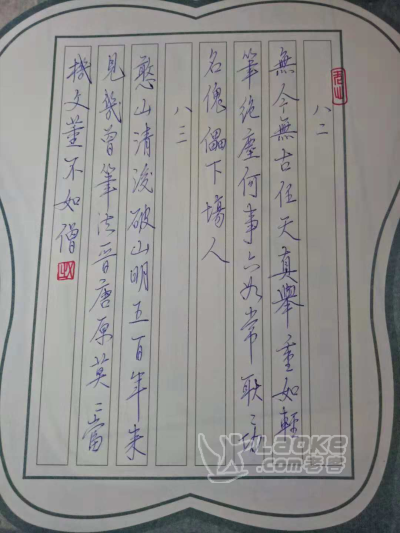 八二
無今無古任天真舉重如輕
筆絕塵何事六如常耿々功
名傀儡下場人
八三
憨山清後破山明五百年來
見幾曾筆法晉唐原莫二當
機文董不如僧
LAOKE
.com老客